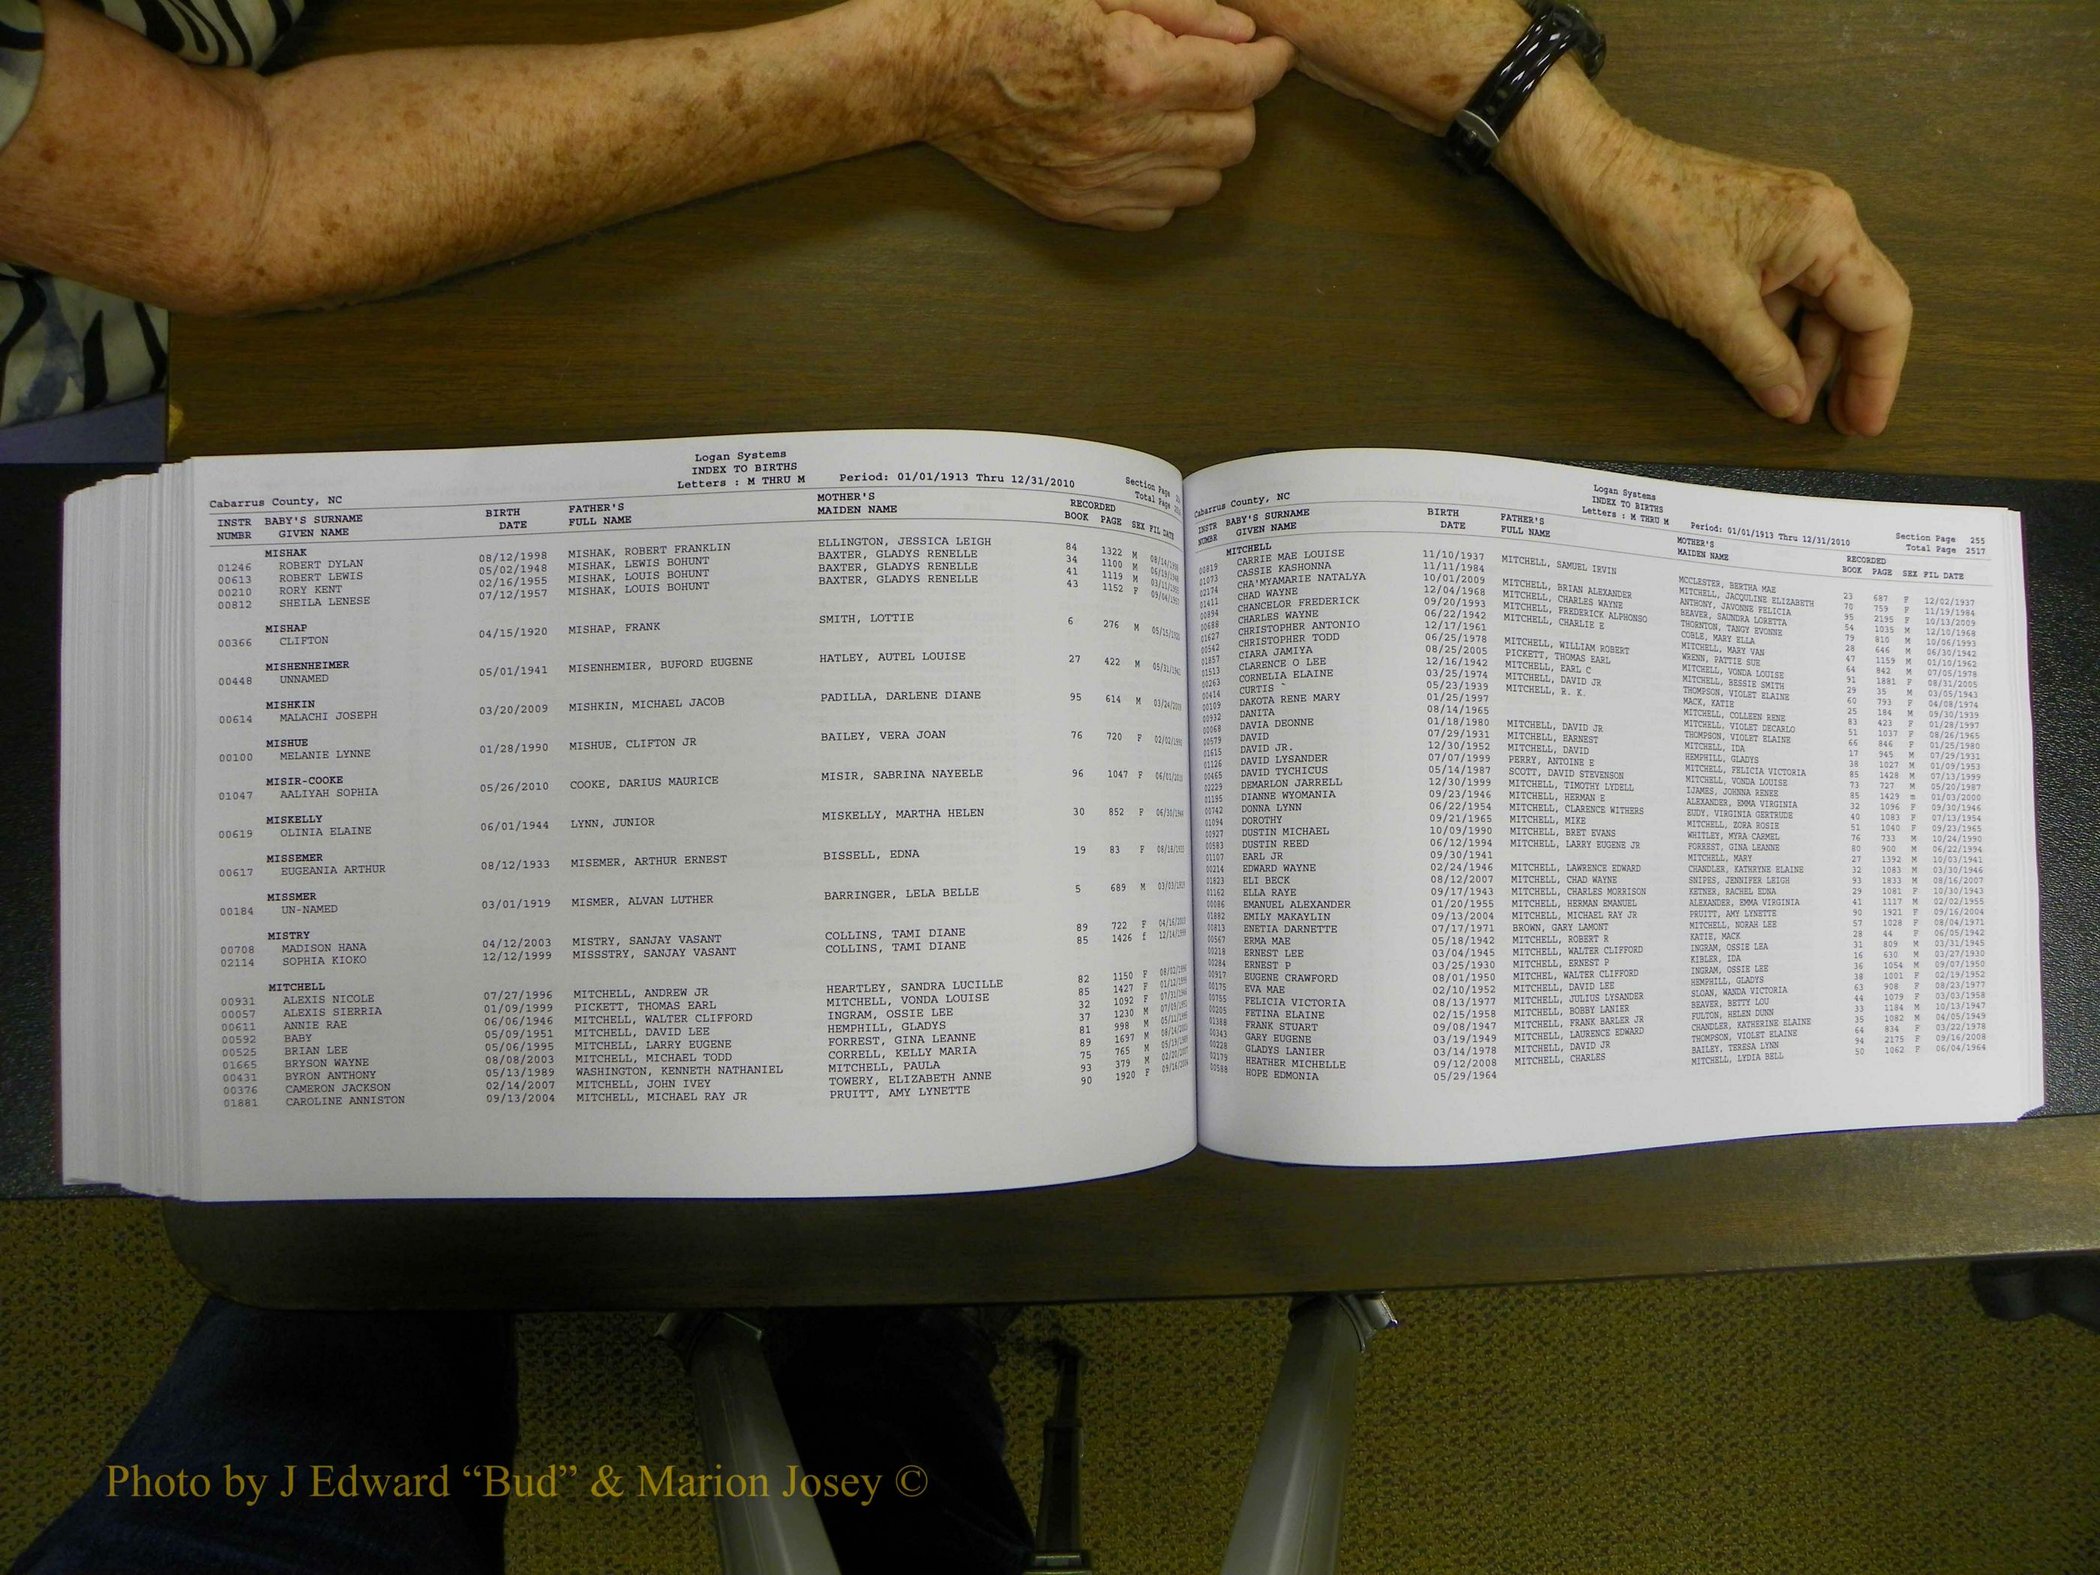 Logan Systems
INDEX TO BIRTHS
Cabarrus County, NC Letters : M THRU M Period: 01/01/1913 Thru 12/31/2010 Section Page
Total Page
INSTR BABY'S SURNAME BIRTH FATHER'S MOTHER'S RECORDED
NUMBR GIVEN NAME DATE FULL NAME MAIDEN NAME BOOK PAGE SEX FIL DATE
MISHAK
01246 ROBERT DYLAN 08/12/1998 MISHAK, ROBERT FRANKLIN ELLINGTON, JESSICA LEIGH 84 1322 M 08/14/1998
00613 ROBERT LEWIS 05/02/1948 MISHAK, LEWIS BOHUNT BAXTER, GLADYS RENELLE 34 1100 M
00210 RORY KENT 02/16/1955 MISHAK, LOUIS BOHUNT BAXTER, GLADYS RENELLE 41 1119 M
00812 SHEILA LENESE 07/12/1957 MISHAK, LOUIS BOHUNT BAXTER, GLADYS RENELLE 43 1152 F
MISHAP
00366 CLIFTON 04/15/1920 MISHAP, FRANK SMITH, LOTTIE 6 276 M 05/15/1920
MISHENHEIMER
00448 UNNAMED 05/01/1941 MISENHEMIER, BUFORD EUGENE HATLEY, AUTEL LOUISE 27 422 M 05/31/1941
MISHKIN
00614 MALACHI JOSEPH 03/20/2009 MISHKIN, MICHAEL JACOB PADILLA, DARLENE DIANE 95 614 M 03/24/2009
MISHUE
00100 MELANIE LYNNE 01/28/1990 MISHUE, CLIFTON JR BAILEY, VERA JOAN 76 720 F 02/02/1990
MISIR-COOKE
01047 AALIYAH SOPHIA 05/26/2010 COOKE, DARIUS MAURICE MISIR, SABRINA NAYEELE 96 1047 F 06/01/2010
MISKELLY
00619 OLINIA ELAINE 06/01/1944 LYNN, JUNIOR MISKELLY, MARTHA HELEN 30 852 F 06/30/1944
MISSEMER
00617 EUGEANIA ARTHUR 08/12/1933 MISEMER, ARTHUR ERNEST BISSELL, EDNA 19 83 F
MISSMER
00184 UN-NAMED 03/01/1919 MISMER, ALVAN LUTHER BARRINGER, LELA BELLE 5 689 M 03/03/1919
MISTRY
00708 MADISON HANA 04/12/2003 MISTRY, SANJAY VASANT COLLINS, TAMI DIANE 89 722 F 04/16/2003
02114 SOPHIA KIOKO 12/12/1999 MISSSTRY, SANJAY VASANT COLLINS, TAMI DIANE 85 1426 f 12/14/1999
MITCHELL
00931 ALEXIS NICOLE 07/27/1996 MITCHELL, ANDREW JR HEARTLEY, SANDRA LUCILLE 82 1150 F 08/02/1996
00057 ALEXIS SIERRIA 01/09/1999 PICKETT, THOMAS EARL MITCHELL, VONDA LOUISE 85 1427 F 01/12/1999
00611 ANNIE RAE 06/06/1946 MITCHELL, WALTER CLIFFORD INGRAM, OSSIE LEE 32 1092 F
00592 BABY 05/09/1951 MITCHELL, DAVID LEE HEMPHILL, GLADYS 37 1230 M
00525 BRIAN LEE 05/06/1995 MITCHELL, LARRY EUGENE FORREST, GINA LEANNE 81 998 M
01665 BRYSON WAYNE 08/08/2003 MITCHELL, MICHAEL TODD CORRELL, KELLY MARIA 89 1697 M
00431 BYRON ANTHONY 05/13/1989 WASHINGTON, KENNETH NATHANIEL MITCHELL, PAULA 75 765 M
00376 CAMERON JACKSON 02/14/2007 MITCHELL, JOHN IVEY TOWERY, ELIZABETH ANNE 93 379 M
01881 CAROLINE ANNISTON 09/13/2004 MITCHELL, MICHAEL RAY JR PRUITT, AMY LYNETTE 90 1920 F
Logan Systems
INDEX TO BIRTHS
Cabarrus County, NC Letters : M THRU M Period: 01/01/1913 Thru 12/31/2010 Section Page 255
Total Page 2517
INSTR BABY'S SURNAME BIRTH FATHER'S MOTHER'S RECORDED
NUMBR GIVEN NAME DATE FULL NAME MAIDEN NAME BOOK PAGE SEX FIL DATE
MITCHELL
00819 CARRIE MAE LOUISE 11/10/1937 MITCHELL, SAMUEL IRVIN MCCLESTER, BERTHA MAE 23 687 F 12/02/1937
01073 CASSIE KASHONNA 11/11/1984 MITCHELL, JACQULINE ELIZABETH 70 759 F 11/19/1984
02174 CHA'MYAMARIE NATALYA 10/01/2009 MITCHELL, BRIAN ALEXANDER ANTHONY, JAVONNE FELICIA 95 2195 F 10/13/2009
01411 CHAD WAYNE 12/04/1968 MITCHELL, CHARLES WAYNE BEAVER, SAUNDRA LORETTA 54 1035 M 12/10/1968
00894 CHANCELOR FREDERICK 09/20/1993 MITCHELL, FREDERICK ALPHONSO THORNTON, TANGY EVONNE 79 810 M 10/06/1993
00688 CHARLES WAYNE 06/22/1942 MITCHELL, CHARLIE E COBLE, MARY ELLA 28 646 M 06/30/1942
01627 CHRISTOPHER ANTONIO 12/17/1961 MITCHELL, MARY VAN 47 1159 M 01/10/1962
00542 CHRISTOPHER TODD 06/25/1978 MITCHELL, WILLIAM ROBERT WRENN, PATTIE SUE 64 842 M 07/05/1978
01857 CIARA JAMIYA 08/25/2005 PICKETT, THOMAS EARL MITCHELL, VONDA LOUISE 91 1881 F 08/31/2005
01513 CLARENCE O LEE 12/16/1942 MITCHELL, EARL C MITCHELL, BESSIE SMITH 29 35 M 03/05/1943
00263 CORNELIA ELAINE 03/25/1974 MITCHELL, DAVID JR THOMPSON, VIOLET ELAINE 60 793 F 04/08/1974
00414 CURTIS ` 05/23/1939 MITCHELL, R. K. MACK, KATIE 25 184 M 09/30/1939
00109 DAKOTA RENE MARY 01/25/1997 MITCHELL, COLLEEN RENE 83 423 F 01/28/1997
00932 DANITA 08/14/1965 MITCHELL, VIOLET DECARLO 51 1037 F 08/26/1965
00068 DAVIA DEONNE 01/18/1980 MITCHELL, DAVID JR THOMPSON, VIOLET ELAINE 66 846 F 01/25/1980
00579 DAVID 07/29/1931 MITCHELL, EARNEST MITCHELL, IDA 17 945 M 07/29/1931
01615 DAVID JR. 12/30/1952 MITCHELL, DAVID HEMPHILL, GLADYS 38 1027 M 01/09/1953
01126 DAVID LYSANDER 07/07/1999 PERRY, ANTOINE E MITCHELL, FELICIA VICTORIA 85 1428 M 07/13/1999
00465 DAVID TYCHICUS 05/14/1987 SCOTT, DAVID STEVENSON MITCHELL, VONDA LOUISE 73 727 M 05/20/1987
02229 DEMARLON JARRELL 12/30/1999 MITCHELL, TIMOTHY LYDELL IJAMES, JOHNNA RENEE 85 1429 m 01/03/2000
01195 DIANNE WYOMANIA 09/23/1946 MITCHELL, HERMAN E ALEXANDER, EMMA VIRGINIA 32 1096 F 09/30/1946
00742 DONNA LYNN 06/22/1954 MITCHELL, CLARENCE WITHERS EUDY, VIRGINIA GERTRUDE 40 1083 F 07/13/1954
01094 DOROTHY 09/21/1965 MITCHELL, MIKE MITCHELL, ZORA ROSIE 51 1040 F 09/23/1965
00927 DUSTIN MICHAEL 10/09/1990 MITCHELL, BRET EVANS WHITLEY, MYRA CARMEL 76 733 M 10/24/1990
00583 DUSTIN REED 06/12/1994 MITCHELL, LARRY EUGENE JR FORREST, GINA LEANNE 80 900 M 06/22/1994
01107 EARL JR 09/30/1941 MITCHELL, MARY 27 1392 M 10/03/1941
00214 EDWARD WAYNE 02/24/1946 MITCHELL, LAWRENCE EDWARD CHANDLER, KATHRYNE ELAINE 32 1083 M 03/30/1946
01823 ELI BECK 08/12/2007 MITCHELL, CHAD WAYNE SNIPES, JENNIFER LEIGH 93 1833 M 08/16/2007
01162 ELLA RAYE 09/17/1943 MITCHELL, CHARLES MORRISON KETNER, RACHEL EDNA 29 1081 F 10/30/1943
00086 EMANUEL ALEXANDER 01/20/1955 MITCHELL, HERMAN EMANUEL ALEXANDER, EMMA VIRGINIA 41 1117 M 02/02/1955
01882 EMILY MAKAYLIN 09/13/2004 MITCHELL, MICHAEL RAY JR PRUITT, AMY LYNETTE 90 1921 F 09/16/2004
00813 ENETIA DARNETTE 07/17/1971 BROWN, GARY LAMONT MITCHELL, NORAH LEE 57 1028 F 08/04/1971
00567 ERMA MAE 05/18/1942 MITCHELL, ROBERT R KATIE, MACK 28 44 F 06/05/1942
00218 ERNEST LEE 03/04/1945 MITCHELL, WALTER CLIFFORD INGRAM, OSSIE LEA 31 809 M 03/31/1945
00284 ERNEST P 03/25/1930 MITCHELL, ERNEST P KIBLER, IDA 16 630 M 03/27/1930
00917 EUGENE CRAWFORD 08/01/1950 MITCHEL, WALTER CLIFFORD INGRAM, OSSIE LEE 36 1054 M 09/07/1950
00175 EVA MAE 02/10/1952 MITCHELL, DAVID LEE HEMPHILL, GLADYS 38 1001 F 02/19/1952
00755 FELICIA VICTORIA 08/13/1977 MITCHELL, JULIUS LYSANDER SLOAN, WANDA VICTORIA 63 908 F 08/23/1977
00205 FETINA ELAINE 02/15/1958 MITCHELL, BOBBY LANIER BEAVER, BETTY LOU 44 1079 F 03/03/1958
01388 FRANK STUART 09/08/1947 MITCHELL, FRANK BARLER JR FULTON, HELEN DUNN 33 1184 M 10/13/1947
00343 GARY EUGENE 03/19/1949 MITCHELL, LAURENCE EDWARD CHANDLER, KATHERINE ELAINE 35 1082 M 04/05/1949
00228 GLADYS LANIER 03/14/1978 MITCHELL, DAVID JR THOMPSON, VIOLET ELAINE 64 834 F 03/22/1978
02179 HEATHER MICHELLE 09/12/2008 MITCHELL, CHARLES BAILEY, TERESA LYNN 94 2175 F 09/16/2008
00588 HOPE EDMONIA 05/29/1964 MITCHELL, LYDIA BELL 50 1062 F 06/04/1964
Photo by J Edward “Bud” & Marion Josey ©